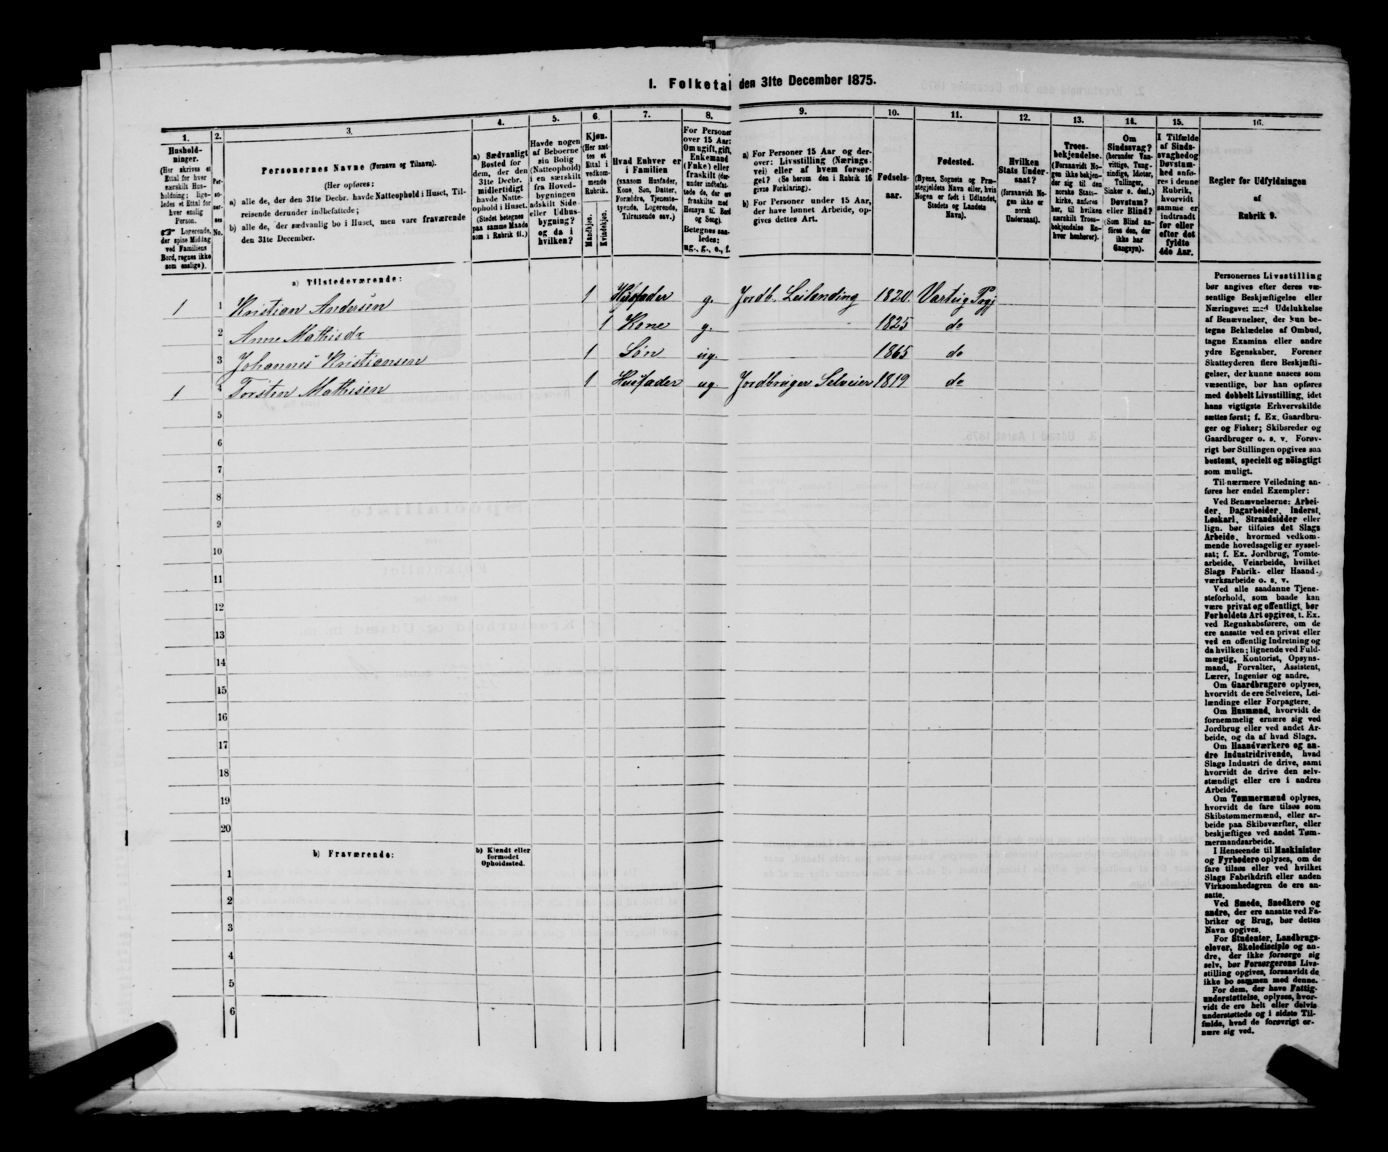 1. Folketal den 31te December 1875.
1.
Hushold-
ninger.
(Her skrives et
Ettal for hver
særskilt Hus-
holdning; lige-
ledes et Ettal for
hver enslig
Person.
☞ Logerende,
der spise Middag
ved Familiens
Bord, regnes ikke
som enslige).
2.
Per-
so-
ner-
nes
No.
3.
Personernes Navne (Fornavn og Tilnavn).
(Her opføres:
a) alle de, der den 31te Decbr. havde Natteophold i Huset, Til-
reisende derunder indbefattede;
b) alle de, der sædvanlig bo i Huset, men vare fraværende
den 31te December.
4.
a) Sædvanligt
Bosted for
dem, der den
31te Decbr.
midlertidigt
havde Natte-
ophold i Huset.
(Stedet betegnes
paa samme Maade
som i Rubrik 11.)
5.
Havde nogen
af Beboerne
sin Bolig
(Natteophold)
i en særskilt
fra Hoved-
bygningen
adskilt Side-
eller Udhus-
bygning?
og da i
hvilken?
6.
Kjøn.
(Her sæt-
tes et
Ettal i
vedkom-
mende
Rubrik.
Mandkjøn.
Kvindekjøn.
7.
Hvad Enhver er
i Familien
(saasom Husfader,
Kone, Søn, Datter,
Forældre, Tjeneste-
tyende, Logerende,
Tilreisende osv.)
8.
For Personer
over 15 Aar:
Om ugift, gift,
Enkemand
(Enke) eller
fraskilt (der-
under indbefat-
tede de, der ere
fraskilte med
Hensyn til Bord
og Seng).
Betegnes saa-
ledes:
ug., g., e., f.
9.
a) For Personer 15 Aar og der-
over: Livsstilling (Nærings-
vei) eller af hvem forsør-
get? (Se herom den i Rubrik 16
givne Forklaring).
b) For Personer under 15 Aar,
der have lønnet Arbeide, op-
gives dettes Art.
10.
Fødsels-
aar.
11.
Fødested.
(Byens, Sognets og Præ-
stegjeldets Navn eller, hvis
Nogen er født i Udlandet,
Stedets og Landets
Navn).
12.
Hvilken
Stats Under-
saat?
(forsaavidt No-
gen ikke er
norsk
Undersaat).
13.
Troes-
bekjendelse.
(Forsaavidt No-
gen ikke bekjen-
der sig til den
norske Stats-
kirke, anføres
her, til hvilken
særskilt Troes-
bekjendelse En-
hver henhører).
14.
Om
Sindssvag?
(herunder Van-
vittige, Tung-
sindige, Idioter,
Tullinger,
Sinker o. desl.)
Døvstum?
eller Blind?
(Som Blind an-
føres den, der
ikke har
Gangsyn).
15.
I Tilfælde
af Sinds-
svaghed og
Døvstum-
hed anfø-
res i denne
Rubrik,
hvorvidt
samme er
indtraadt
før eller
efter det
fyldte
4de Aar.
16.
Regler for Udfyldningen
af
Rubrik 9.
a) Tilstedeværende:
1 1 Kristian Andersen 1 Husfader g. Jordb. Leilending 1820 Varteig Prgj
2 Anne Mathisdr 1 Kone g. 1825 do
3 Johannes Kristiansen 1 Søn ug. 1865 do
1 4 Torsten Mathisen 1 Husfader ug. Jordbruger Selveier 1819 do
5
6
7
8
9
10
11
12
13
14
15
16
17
18
19
20
b) Fraværende:
b) Kjendt eller
formodet
Opholdssted.
1
2
3
4
5
6
Personernes Livsstilling
bør angives efter deres væ-
sentlige Beskjæftigelse eller
Næringsvei med Udelukkelse
af Benævnelser, der kun be-
tegne Beklædelse af Ombud,
tagne Examina eller andre
ydre Egenskaber. Forener
Skatteyderen flere Beskjæfti-
gelser, der kunne ansees som
væsentlige, bør han opføres
med dobbelt Livsstilling, idet
hans vigtigste Erhvervskilde
sættes først; f. Ex. Gaardbru-
ger og Fisker; Skibsreder og
Gaardbruger o. s. v. Forøv-
rigt bør Stillingen opgives saa
bestemt, specielt og nøiagtigt
som muligt.
Til nærmere Veiledning an-
føres her endel Exempler:
Ved Benævnelserne: Arbei-
der, Dagarbeider, Inderst,
Løskarl, Strandsidder eller
lign. bør tilføies det Slags
Arbeide, hvormed vedkom-
mende hovedsagelig er syssel-
sat; f. Ex. Jordbrug, Tomte-
arbeide, Veiarbeide, hvilket
Slags Fabrik- eller Haand-
værksarbeide o. s. v.
Ved alle saadanne Tjene-
steforhold, som baade kan
være privat og offentligt, bør
Forholdets Art opgives, f. Ex.
ved Regnskabsførere, om de
ere ansatte ved en privat eller
ved en offentlig Indretning og
da hvilken; lignende ved Fuld-
mægtig, Kontorist, Opsyns-
mand, Forvalter, Assistent,
Lærer, Ingeniør og andre.
Om Gaardbrugere oplyses,
hvorvidt de ere Selveiere, Lei-
lændinge eller Forpagtere.
Om Husmænd, hvorvidt de
fornemmelig ernære sig ved
Jordbrug eller ved andet Ar-
beide, og da af hvad Slags.
Om Haandværkere og an-
dre Industridrivende, hvad
Slags Industri de drive, samt
hvorvidt de drive den selv-
stændigt eller ere i andres
Arbeide.
Om Tømmermænd oplyses,
hvorvidt de fare tilsøs som
Skibstømmermænd, eller ar-
beide paa Skibsværfter, eller
beskjæftiges ved andet Tøm-
mermandsarbeide.
I Henseende til Maskinister
og Fyrbødere oplyses, om de
fare tilsøs eller ved hvilket
Slags Fabrikdrift eller anden
Virksomhedsgren de ere an-
satte.
Ved Smede, Snedkere og
andre, der ere ansatte ved Fa-
briker og Brug, bør dettes
Navn opgives.
For Studenter, Landbrugs-
elever, Skoledisciple og an-
dre, der ikke forsørge sig
selv, bør Forsørgerens Livs-
stilling opgives, forsaavidt de
ikke bo sammen med denne.
For dem, der have Fattig-
understøttelse, oplyses, hvor-
vidt de ere helt eller delvis
understøttede og i sidste Til-
fælde, hvad de forøvrigt er-
nære sig ved.